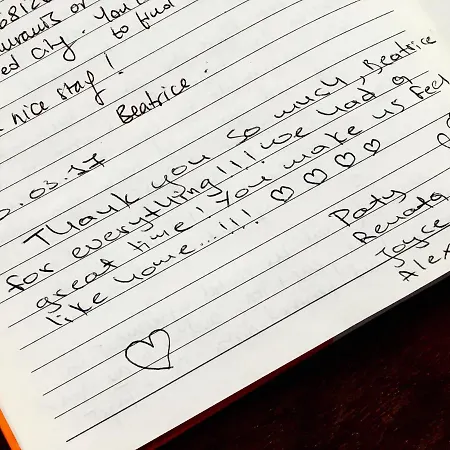 6812
urants or
ed city. You
to find
nice stay!
Beatrice.
.03.17
Thank you so much, Beatrice
for everything!!! We had a
great time! You make us feel
like home...!!!
Paty
Renata
Joyce
Alex